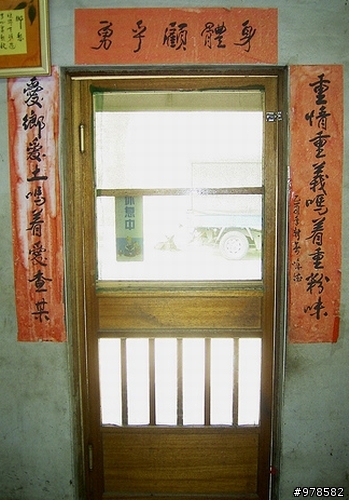 身體顧乎勇
重情重義嗎着重粉味
愛鄉愛土嗎着愛查某
休息中
#978582